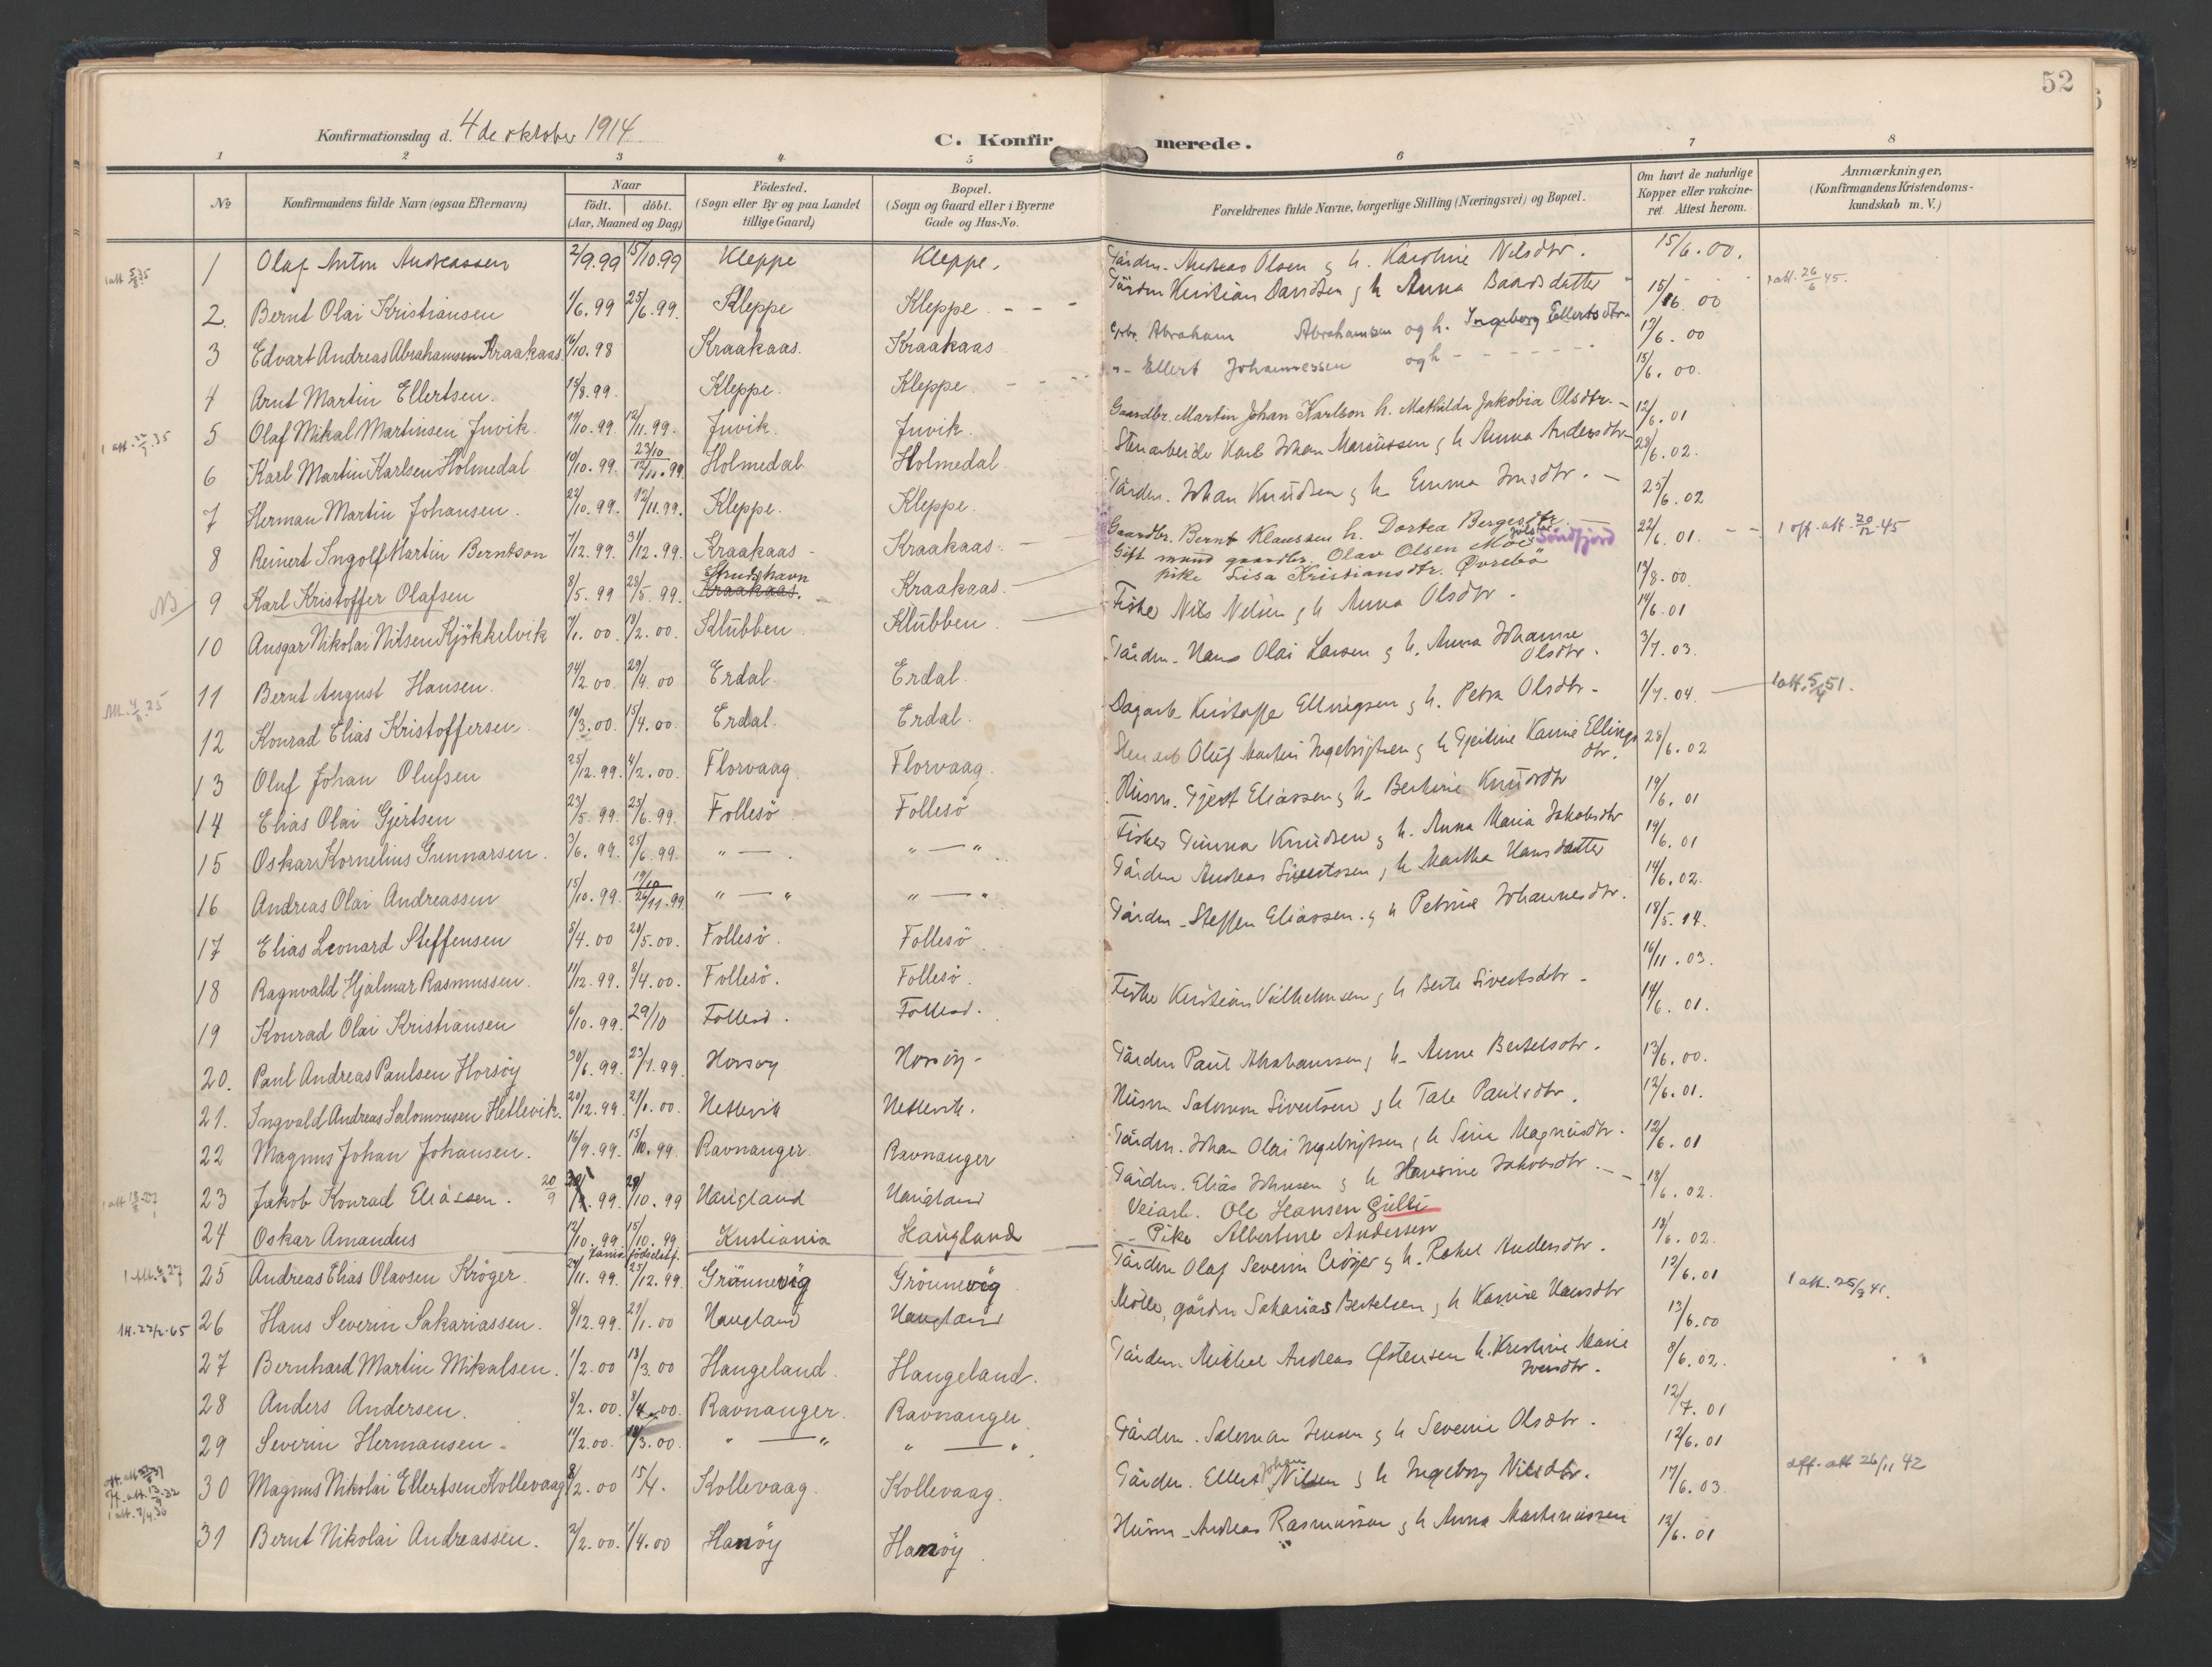 52
Konfirmationsdag d. 4 de oktober 1914
C. Konfirmerede.
1 2 3 4 5 6 7 8
No
Konfirmandens fulde Navn (ogsaa Efternavn)
Naar
födt. döbt.
(Aar, Maaned og Dag)
Födested.
(Sogn eller By og paa Landet tillige Gaard)
Bopæl.
(Sogn og Gaard eller i Byerne Gade og Hus-No.
Forældrenes fulde Navne, borgerlige Stilling (Næringsvei) og Bopæl.
Om havt de naturlige Kopper eller vakcineret. Attest herom.
Anmærkninger,
(Konfirmandens Kristendomskundskab m. V.)
1 Olaf Anton Andreassen 2/9.99 15/10.99 Kleppe Kleppe. Gårdm. Andreas Olsen g h. Karoline Nilsdtr. 15/6.00.
2. Bernt Olai Kristiansen 1/6.99 25/6.99. Kleppe Kleppe. Gårdm Kristian Davidsen g h Anna Baardsdatter 15/6 00 att. 26/6 45.
3 Edvart Andreas Abrahamsen Kraakaas 16/10.98 Kraakaas. Kraakaas Abraham Abrahamsen og h. Ingeborg Ellertsdtr 12/6.00
4 Arnt Martin Ellertsen. 15/8.99. Kleppe. Kleppe Ellert Johannessen og h 15/6.00.
5 Olaf Mikal Martinsen Juvik 19/10.99. 12/11.99. Juvik. Juvik. Gaardbr. Martin Johan Karlson h. Mathilda Jakobia Olsdtr. 12/6.01
6 Karl Martin Karlsen Holmedal 10/10.99. 23/10 12/11.99 Holmedal Holmedal Stenarbeider Karl Johan Marcussen g h Anna Andersdtr 28/6.02.
7 Herman Martin Johansen. 22/10.99. 12/11.99. Kleppe. Kleppe. Gårdm. Johan Knudsen g h Emma Jonsdtr. 25/6.02
8 Reinert Ingolf Martin Berntson 7/12.99. 31/12.99. Kraakaas Kraakaas. Gaardbr. Bernt Klaussen h. Dortea Bergesdtr. 22/6.01. 1 off. att. 20/12 45
9 Karl Kristoffer Olafsen 8/5.99 28/5.99. Kraakaas. Kraakaas. Gift mand gaardbr. Olav Olsen Moe Söndfjord
pike Lisa Kristiansdtr. Øvrebö 13/8.00.
NB
10 Ansgar Nikolai Nilsen Kjökkelvik 7/1.00. 18/2.00. Klubben Klubben Fisker Nils Nelsen g h Anna Olsdtr. 14/6.01
11 Bernt August Hansen. 14/2 00. 29/4.00 Erdal. Erdal. Gårdm. Hans Olai Larsen g h. Anna Johanne Olsdtr. 3/7.03.
12 Konrad Elias Kristoffersen 10/3.00. 15/4.00. Erdal. Erdal. Dagarb. Kristoffer Ellingsen g h. Petra Olsdtr. 1/7.04. 1 att. 5/4 51.
13 Oluf Johan Olufsen 25/12.99. 4/2.00. Florvaag Florvaag. Stenarb Oluf Martin Ingebrigtsen g h Gjertine Karine Ellingsdtr. 28/6.02
14 Elias Olai Gjertsen 23/5.99. 25/6.99. Follesö Follesö Husm. Gjert Eliassen g h. Bertine Knudsdtr 19/6.01
15 Oskar Kornelius Gunnarsen. 3/6.99. 25/6.99. " — . " — " Fisker Gunnar Knudsen g h. Anna Maria Jakobsdtr 19/6.01
16 Andreas Olai Andreassen 15/10.99. 19/10 26/11.99. " — " " — " Gårdm Andreas Sivertsen g h Martha Hansdatter 14/6.02.
17 Elias Leonard Steffensen 8/4.00 20/5.00. Follesö. Follesö Gårdm. Steffen Eliassen. g h Petrine Johannesdtr. 18/5.14.
18 Ragnvald Hjalmar Rasmussen. 11/12.99. 8/4.00. Follesö. Follesö. 16/11.03.
19 Konrad Olai Kristiansen 6/10.99. 29/10 Follesö. Follesö. Fisker Kristian Vilhelmsen g h Berte Sivertsdtr. 14/6.01.
20. Paul Andreas Paulsen Horsöy 30/6.99. 23/7.99. Horsöy Horsöy. Gårdm Paul Abrahamsen g h Anne Bertelsdtr. 13/6.00.
21. Ingvald Andreas Salomonsen Hetlevik. 20/12.99. 21/1.00. Hetlevik Hetlevik. Husm. Salomon Sivertsen g h Tale Paulsdtr. 12/6.01.
22 Magnus Johan Johansen. 16/9.99. 15/10.99. Ravnanger. Ravnanger Gårdm. Johan Olai Ingebrigtsen g h Sine Magnusdtr. 12/6.01
23 Jakob Konrad Eliassen. 20/9 .99. 29/10.99 Haugland Haugland Gårdm. Elias Johnsen g h Hansine Jakobsdtr. 18/6.02.
24 Oskar Amandus 12/10.99. 15/10.99 Kristiania Haugland Veiarb. Ole Hansen Gulli
Pike Albertine Andersen 18/6.02.
25 Andreas Elias Olavsen Kröger. 24/11.99. 25/12.99. Grönnevig Grönnevig Gårdm Olaf Severin Cröger g h. Rakel Andersdtr. 12/6.01
26 Hans Severin Sakariassen. 8/12.99. 21/1.00 Haugland Haugland Möller, gårdm Sakarias Bertelsen g h Karine Hansdtr 13/6.00 1 att. 25/9 41.
27 Bernhard Martin Mikalsen. 1/2.00 18/3.00 Haugeland. Haugeland. Gårdm. Mikkel Andreas Østensen h. Kristine Marie Iversdtr. 8/6.02.
28 Anders Andersen. 8/2.00. 8/4.00. Ravnanger. Ravnanger. 12/7.01
29 Severin Hermansen. 11/2.00. 18/3.00. " — " " — " Gårdm. Salomon Jensen g h Severine Olsdtr. 12/6.01
30 Magnus Nikolai Ellertsen Kollevaag 8/2.00 15/4. Kollevaag. Kollevaag. Gårdm. Ellert Johan Nilsen g h Ingeborg Nilsdtr. 17/6.03. off. att 26/11 42
31 Bernt Nikolai Andreassen. 2/2.00. 1/4.00 Hanöy Hanöy. Husm. Andreas Rasmussen g h Anna Martinussen 12/6.01